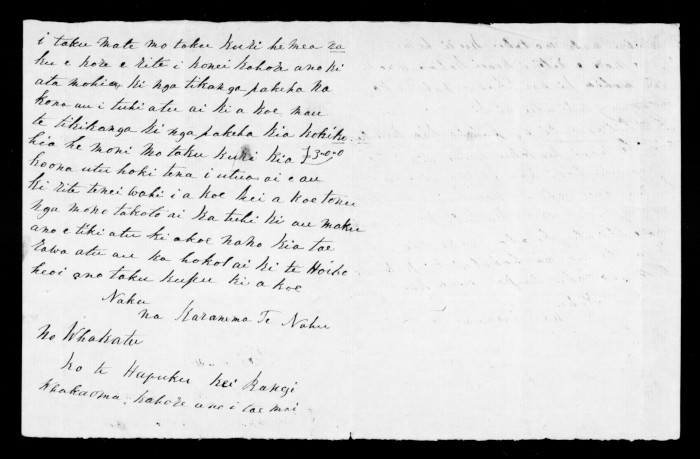 i taku mate mo taku kuri he mea ra
hu e kore e rite i konei kahore ano ki
ata mohio, ki nga tikanga pakeha na
kona au i tuhi atu ai ki a koe mau
te tikikanga ki nga pakeha kia
hia he moni mo taku kuri kia £3-0-0
koona utu hoki tena i utua, ai e au
ki rite tenei wahi i a koe kei a koe tonu
nga mone takoto ai ka tuhi ki au maku
ano e tiki atu ki a koe kia tae
rawa atu au ka hoko ai ki te Hoiho
heoi ano taku kupu ki a koe
Naku
na Karanema Te Nahu
No Whakatu
ko te Hapuku kei Rangi
Whakaoma, kahore ano i tae mai